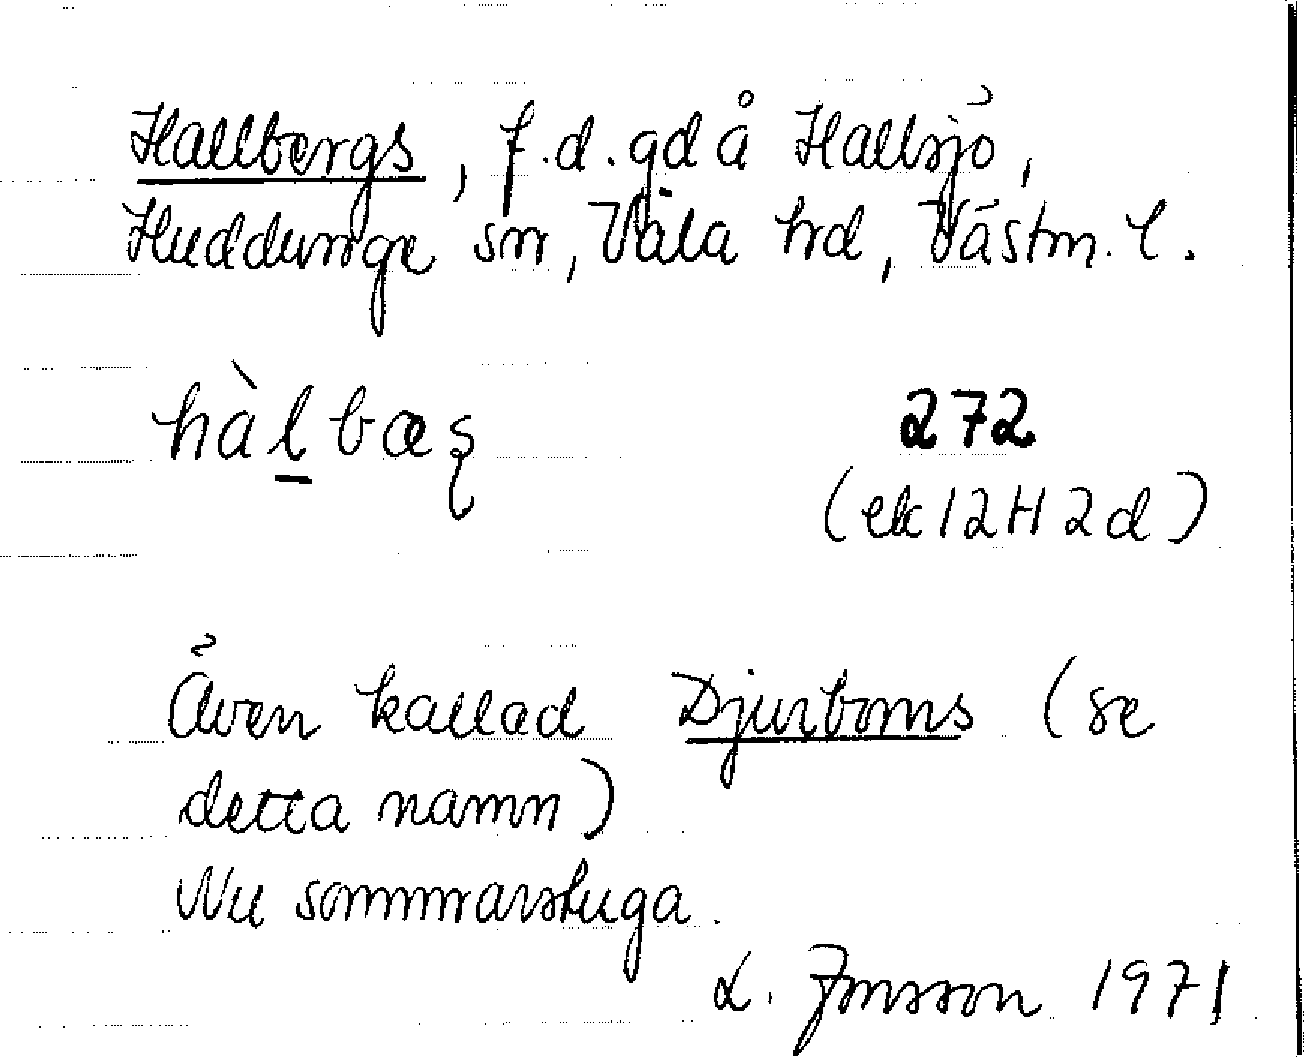 Hallbergs, f.d. gd å Hallsjö,
Huddunge sn, Våla hd, Västm. l.
hàl̠bæȿ 272
(ek 12H2d)
Även kallad Djurboms (se
detta namn)
Nu sommarstuga.
L. Jonsson 1971